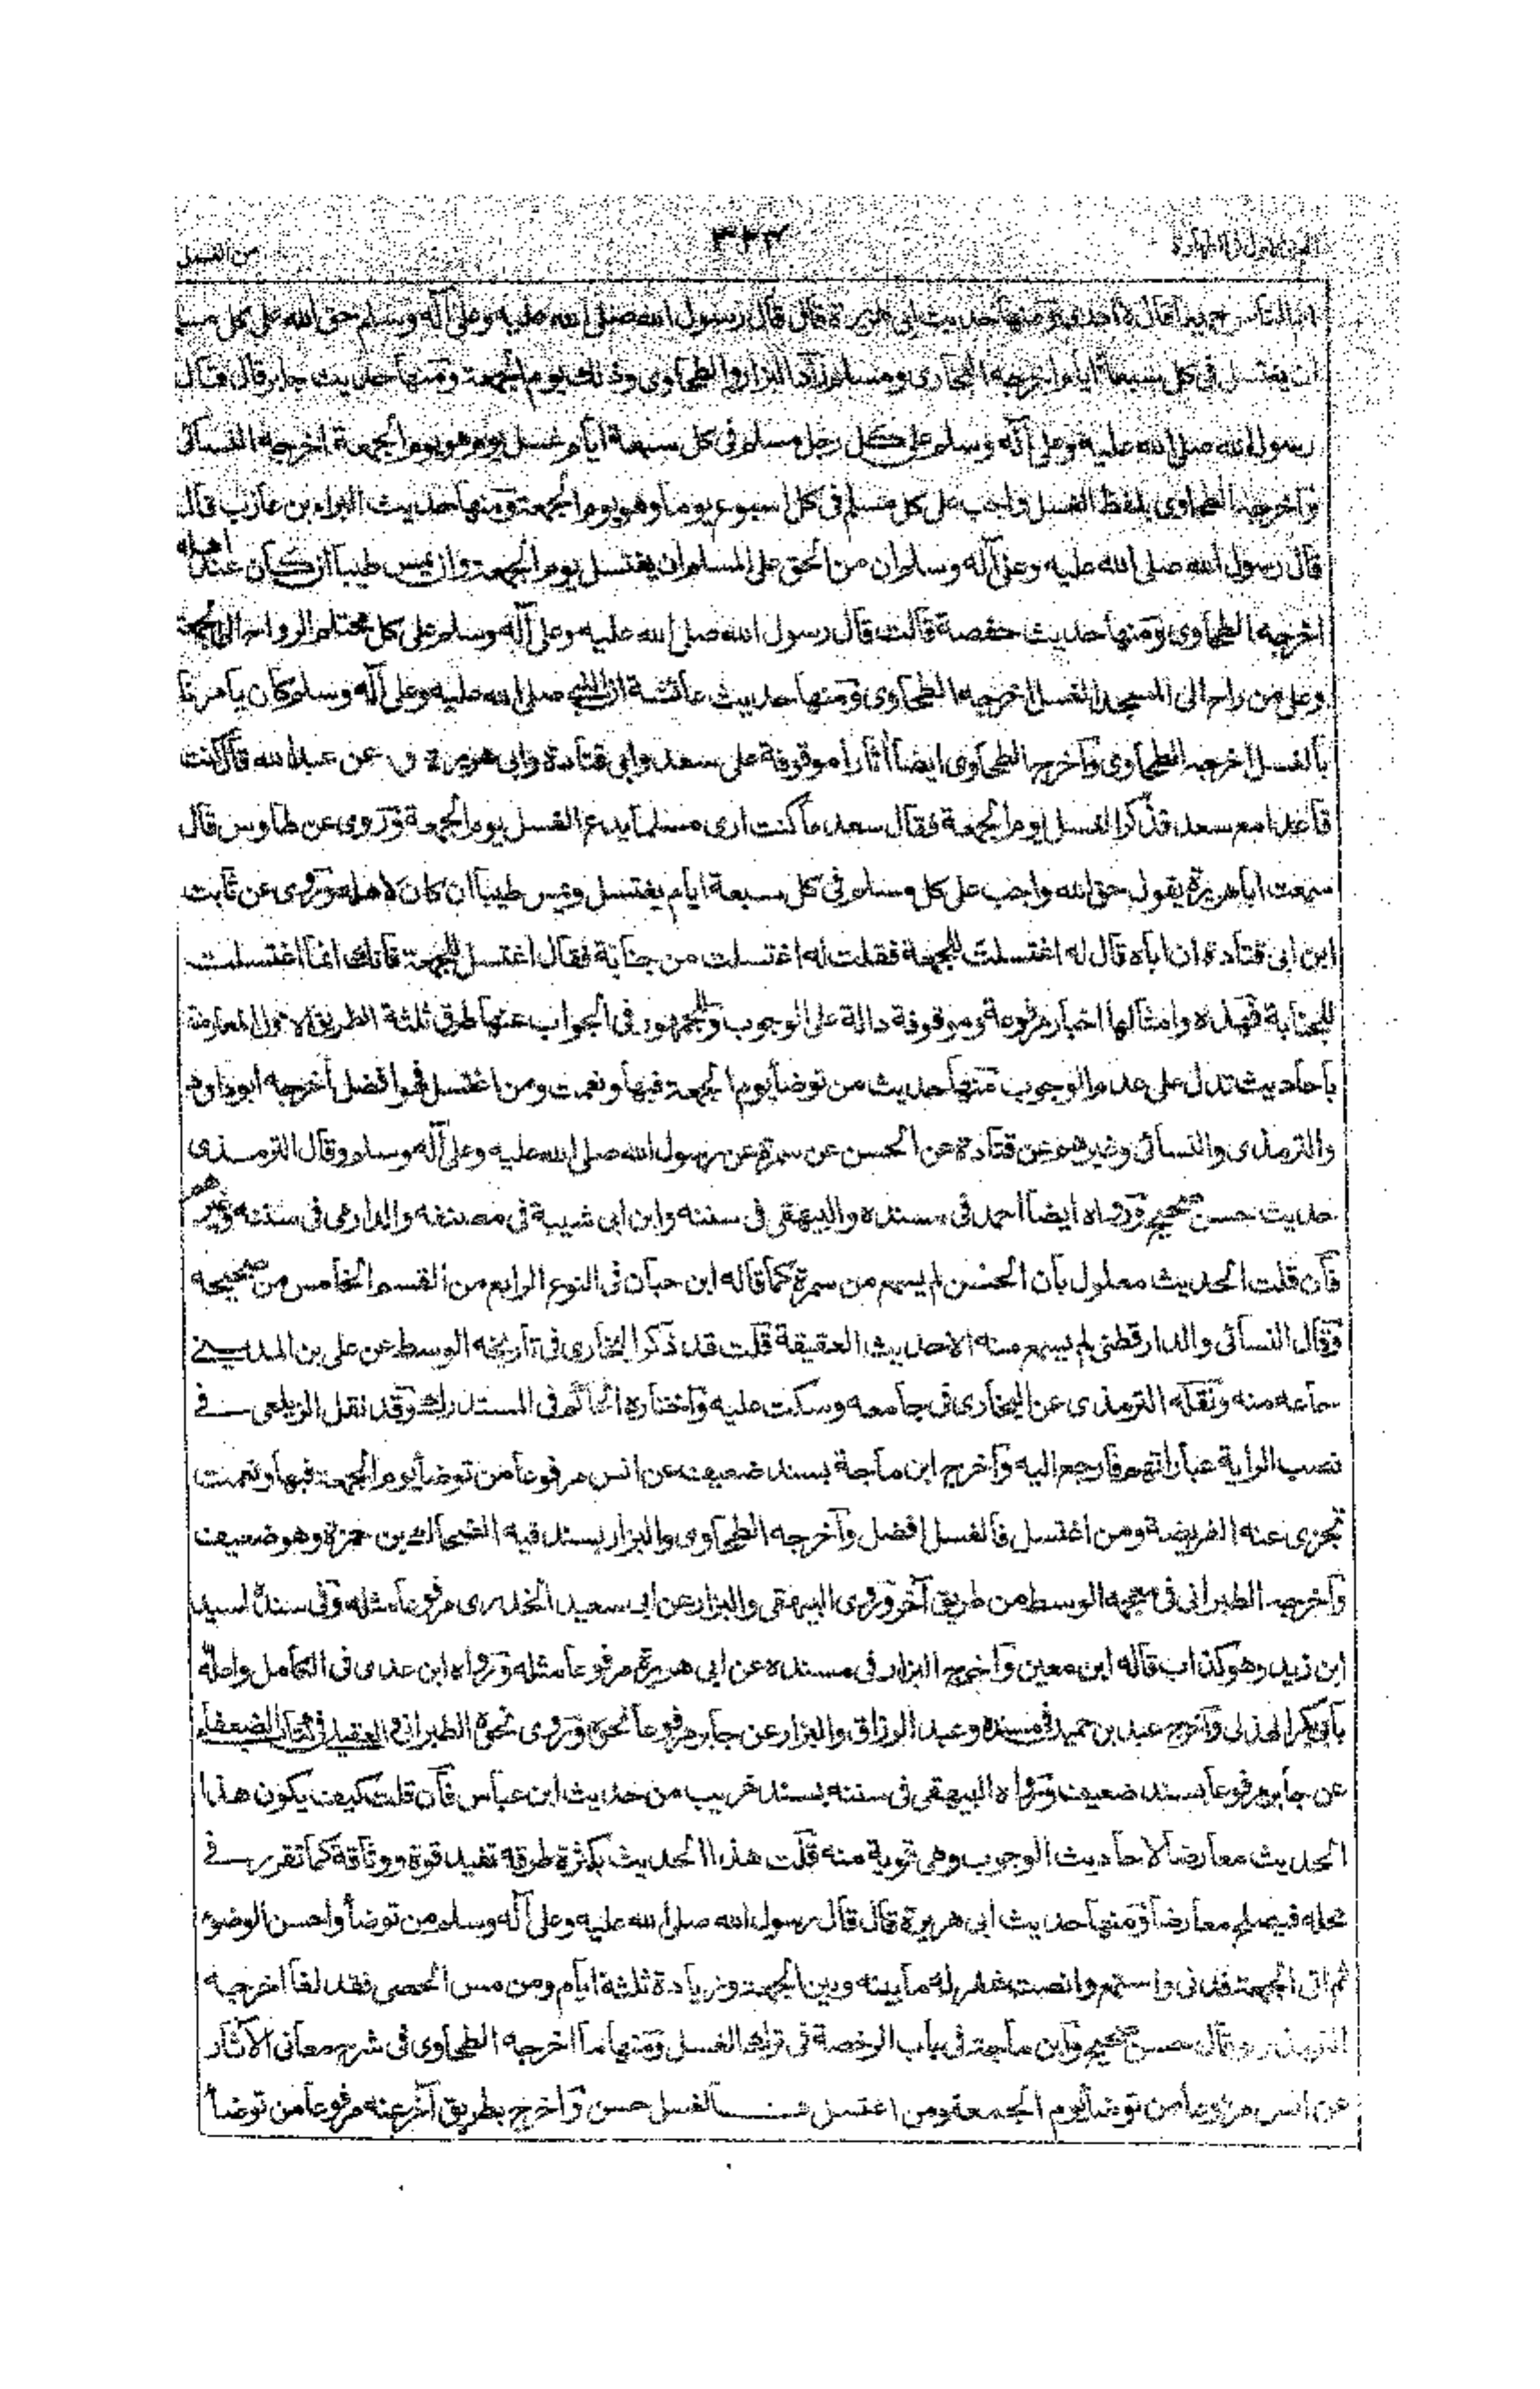 ٣٢٣
من الغسل
ومنها حديث ابى هريرة قال قال رسول الله صلى الله عليه وعلى آله وسلم حق الله على كل مسلم
ان يغتسل فى كل سبعة ايام اخرجه البخارى ومسلم زاد البزار والطحاوى وذلك يوم الجمعة ومنها حديث جابر قال قال
رسول الله صلى الله عليه وعلى آله وسلم على كل رجل مسلم فى كل سبعة ايام غسل يوم وهو يوم الجمعة اخرجه النسائى
وآخرجه الطحاوى بلفظ الغسل واجب على كل مسلم فى كل اسبوع يوما وهو يوم الجمعة ومنها حديث البراء بن عازب قال
قال رسول الله صلى الله عليه وعلى آله وسلم ان من الحق على المسلم ان يغتسل يوم الجمعة وان يمس طيبا ان كان عند اهله
اخرجه الطحاوى ومنها حديث حفصة قالت قال رسول الله صلى الله عليه وعلى آله وسلم على كل محتلم الرواح الى الجمعة
وعلى من راح الى المسجد الغسل اخرجه الطحاوى ومنها حديث عائشة ان النبى صلى الله عليه وعلى آله وسلم كان يأمرنا
بالغسل اخرجه الطحاوى وآخرج الطحاوى ايضا آثارا موقوفة على سعد وابى قتادة وابى هريرة فعن عبد الله قال كنت
قاعدا مع سعد فذكر الغسل يوم الجمعة فقال سعد ما كنت ارى مسلما يدع الغسل يوم الجمعة وروى عن طاوس قال
سمعت ابا هريرة يقول حق الله واجب على كل مسلم فى كل سبعة ايام يغتسل ويمس طيبا ان كان لاهله وروى عن ثابت
ابن ابى قتادة ان اباه قال له اغتسلت للجمعة فقلت له اغتسلت من جنابة فقال اغتسل للجمعة فانك انما اغتسلت
للجنابة فهذه وامثالها اخبار مرفوعة وموقوفة دالة على الوجوب وللجمهور فى الجواب عنها طرق ثلثة الطريق الاول المعارضة
باحاديث تدل على عدم الوجوب منها حديث من توضأ يوم الجمعة فبها ونعمت ومن اغتسل فهو افضل اخرجه ابوداود
والترمذى والنسائى وغيرهم عن قتادة عن الحسن عن سمرة عن رسول الله صلى الله عليه وعلى آله وسلم وقال الترمذى
حديث حسن صحيح ورواه ايضا احمد فى مسنده والبيهقى فى سننه وابن ابى شيبة فى مصنفه والدارمى فى سننه وغيرهم
فآن قلت الحديث معلول بأن الحسن لم يسمع من سمرة كما قاله ابن حبان فى النوع الرابع من القسم الخامس من صحيحه
وقال النسائى والدارقطنى لم يسمع منه الا حديث العقيقة قلت قد ذكر البخارى فى تاريخه الوسط عن على بن المدينى
سماعه منه ونقله الترمذى عن البخارى فى جامعه وسكت عليه واختاره الحاكم فى المستدرك وقد نقل الزيلعى فى
نصب الراية عباراتهم فارجع اليه وآخرج ابن ماجة بسند ضعيف عن انس مرفوعا من توضأ يوم الجمعة فبها ونعمت
تجزى عنه الفريضة ومن اغتسل فالغسل افضل وآخرجه الطحاوى والبزار بسند فيه الضحاك بن حمزة وهو ضعيف
وآخرجه الطبرانى فى معجمه الوسط من طريق آخر وروى البيهقى والبزار عن ابى سعيد الخدرى مرفوعا مثله وفى سنده اسيد
ابن زيد وهو كذاب قاله ابن معين وآخرج البزار فى مسنده عن ابى هريرة مرفوعا مثله ورواه ابن عدى فى الكامل واعله
بأبى بكر الهذلى وآخرج عبد بن حميد فى مسنده وعبد الرزاق والبزار عن جابر مرفوعا نحوه وروى نحوه الطبرانى والعقيلى فى كتاب الضعفاء
عن جابر مرفوعا بسند ضعيف ورواه البيهقى فى سننه بسند غريب من حديث ابن عباس فآن قلت كيف يكون هذا
الحديث معارضا لاحاديث الوجوب وهى قوية منه قلت هذا الحديث بكثرة طرقه تفيد قوة ووثاقة كما تقرر فى
محله فيصلح معارضا ومنها حديث ابى هريرة قال قال رسول الله صلى الله عليه وعلى آله وسلم من توضأ واحسن الوضوء
ثم اتى الجمعة فدنى واستمع وانصت غفر له ما بينه وبين الجمعة وزيادة ثلثة ايام ومن مس الحصى فقد لغا اخرجه
الترمذى وقال حسن صحيح وابن ماجة فى باب الرخصة فى ترك الغسل ومنها ما اخرجه الطحاوى فى شرح معانى الآثار
عن انس مرفوعا من توضأ يوم الجمعة ومن اغتسل فالغسل حسن وآخرج بطريق آخر عنه مرفوعا من توضأ